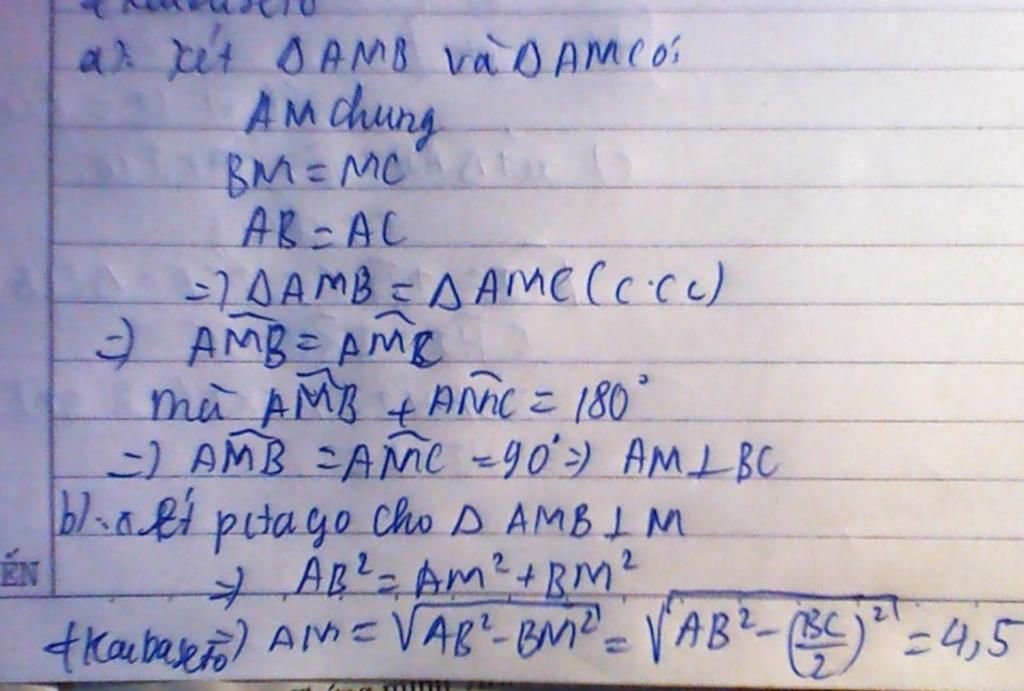 a): Xét Δ AMB và Δ AMC có:
AM chung
BM = MC
AB = AC
=> Δ AMB = Δ AMC (c.c.c)
=> \widehat{AMB} = \widehat{AMC}
mà \widehat{AMB} + \widehat{AMC} = 180°
=> \widehat{AMB} = \widehat{AMC} = 90° => AM ⊥ BC
b) xét pitago cho Δ AMB ⊥ M
ẾN
=> AB² = AM² + BM²
=> AM = √(AB² - BM²) = √(AB² - (BC/2)²) = 4,5